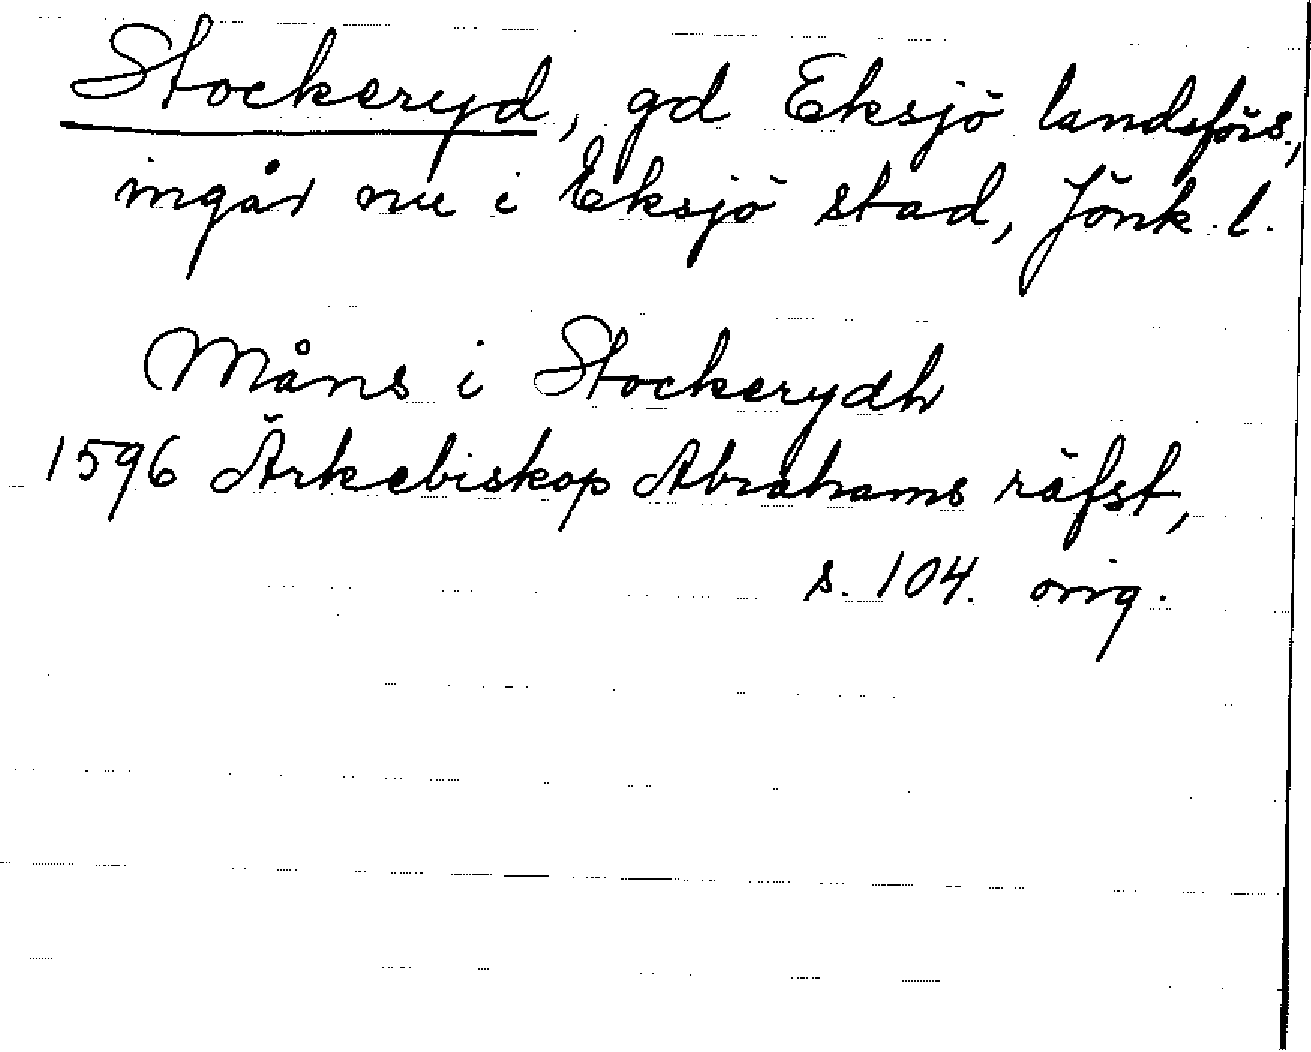 Stockeryd, gd Eksjö landsförs.,
ingår nu i Eksjö stad, Jönk. l.
Måns i Stockerydh
1596 Ärkebiskop Abrahams räfst,
s. 104. orig.